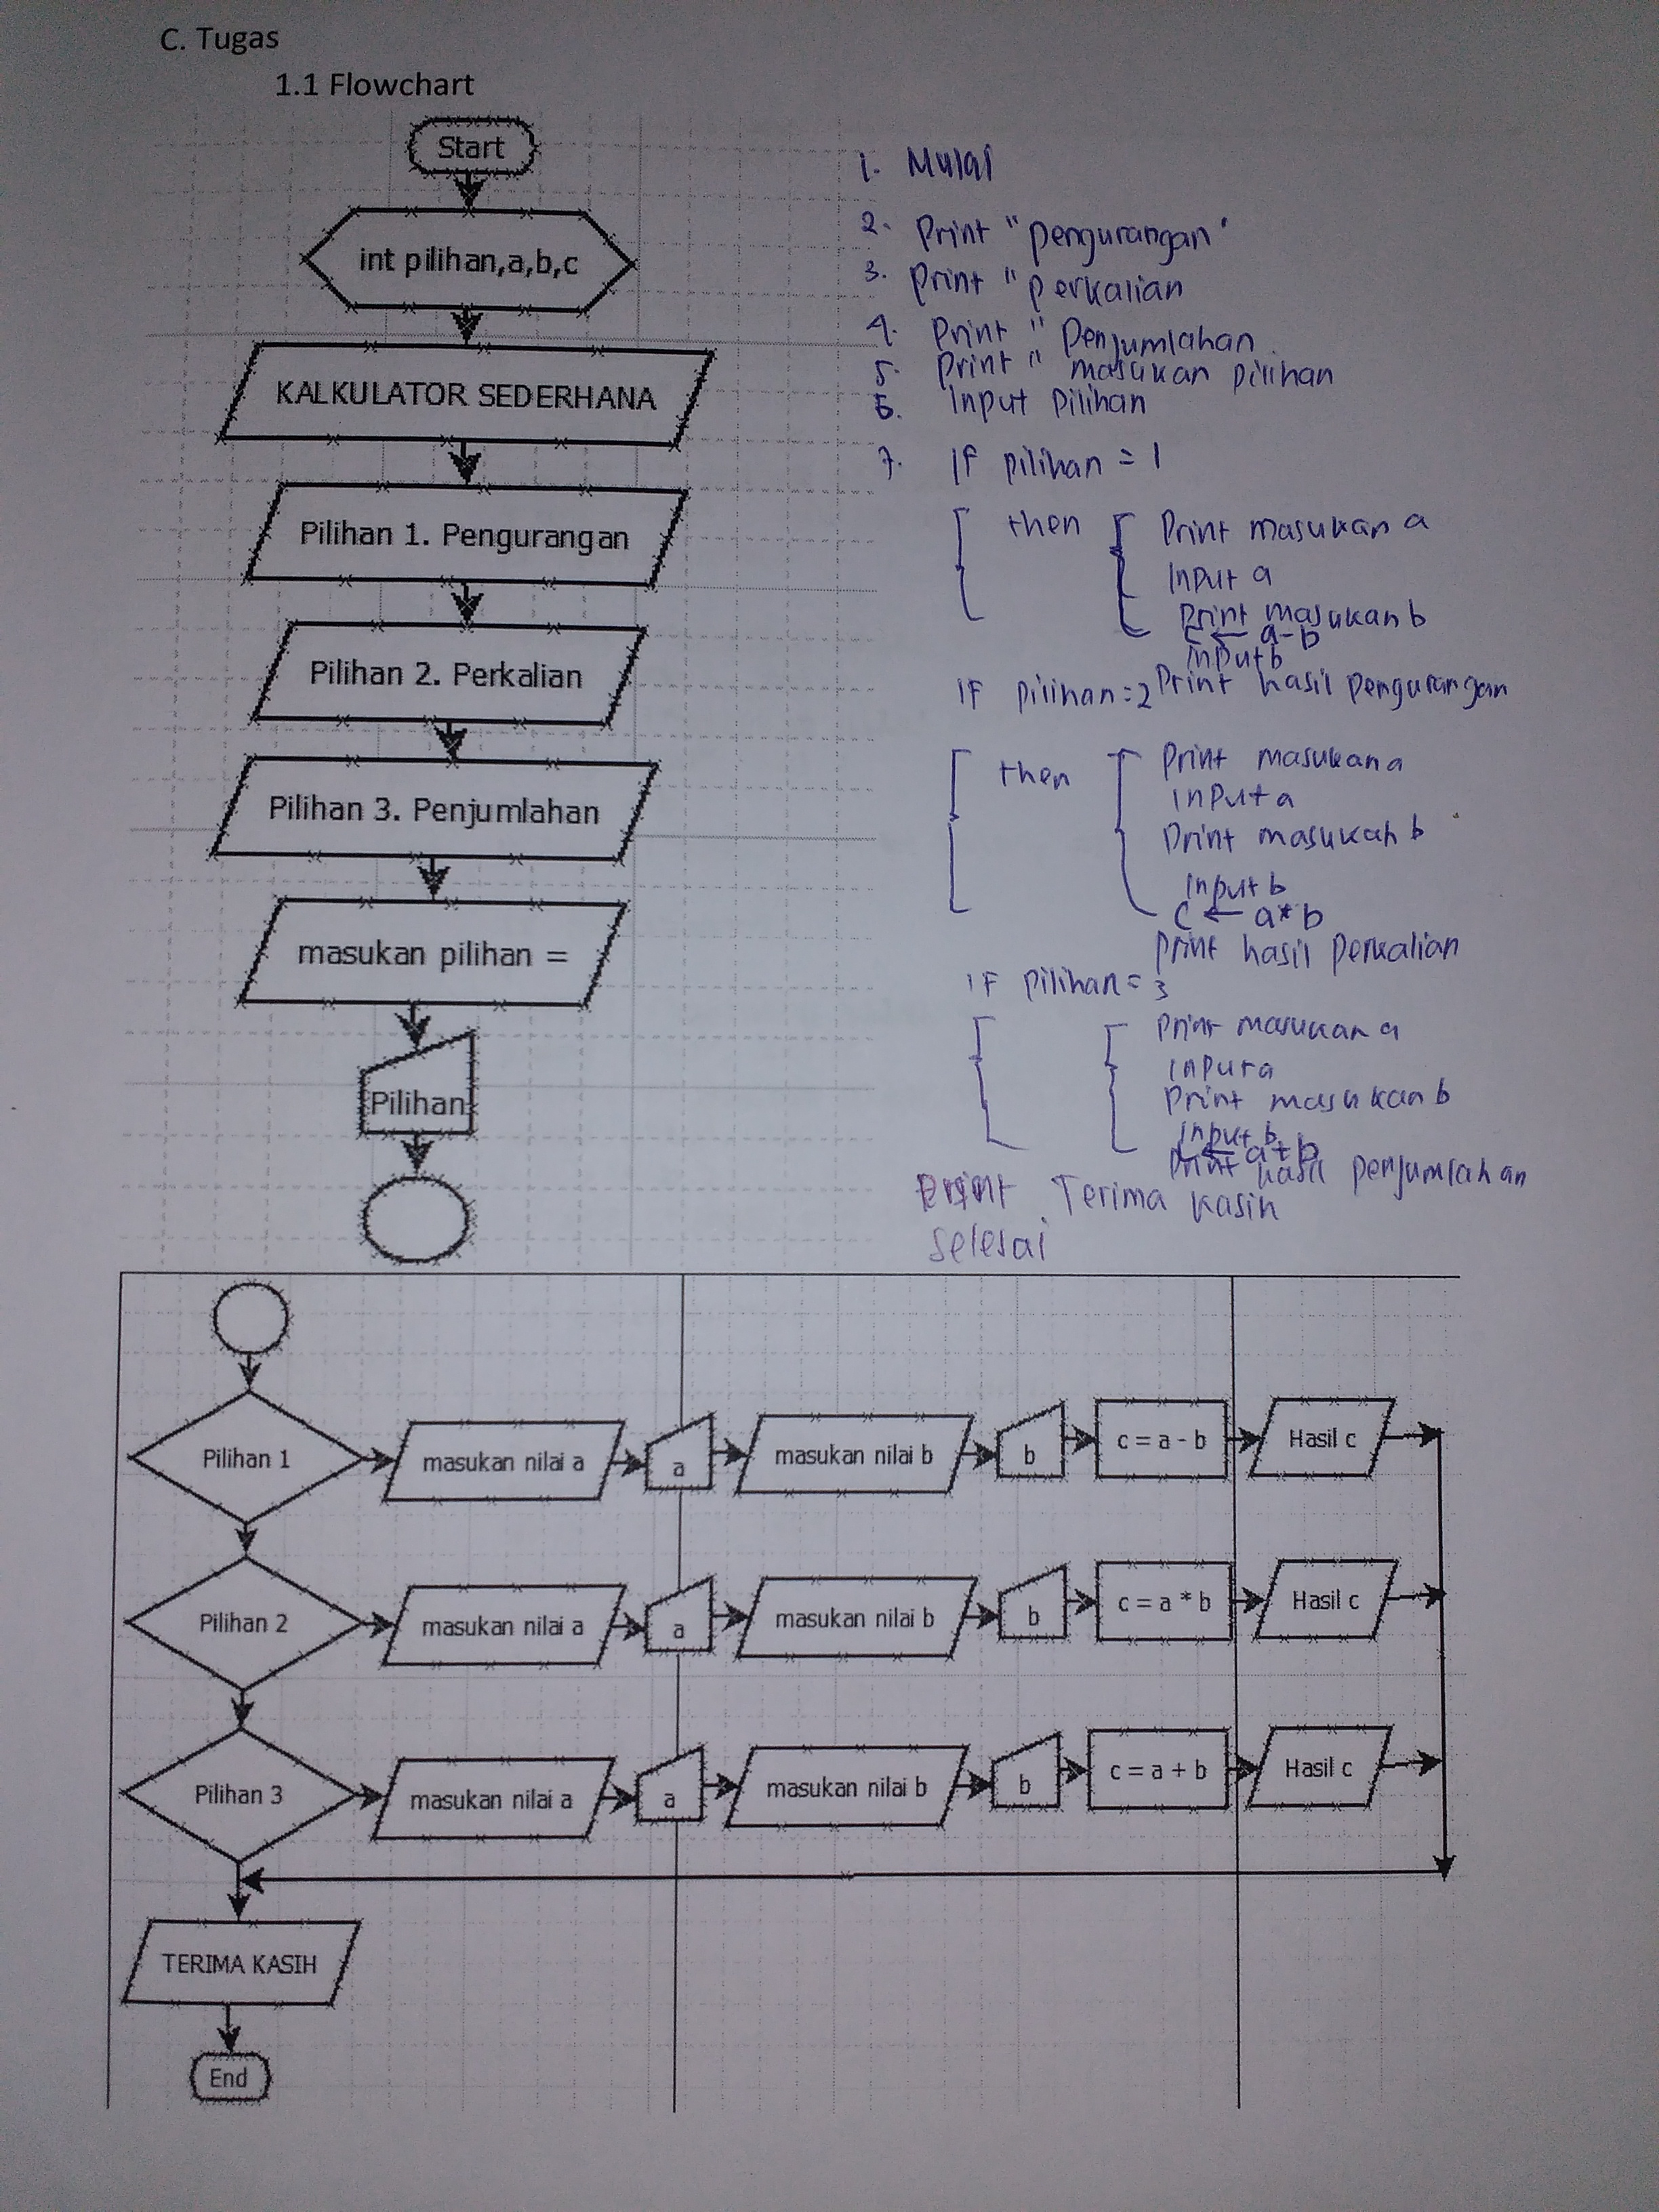 C. Tugas
1.1 Flowchart
Start
int pilihan,a,b,c
KALKULATOR SEDERHANA
Pilihan 1. Pengurangan
Pilihan 2. Perkalian
Pilihan 3. Penjumlahan
masukan pilihan =
Pilihan
1. Mulai
2. Print "pengurangan"
3. Print "perkalian
4. Print "Penjumlahan
5. Print " masukan pilihan
6. Input Pilihan
7. If pilihan = 1
then
Print masukan a
Input a
Print masukan b
C ← a-b
Input b
Print hasil pengurangan
If pilihan = 2
then
Print masukan a
Input a
Print masukan b
Input b
C ← a*b
Print hasil Perkalian
if Pilihan = 3
Print masukan a
Input a
Print masukan b
Input b
C ← a+b
Print hasil penjumlahan
Print Terima kasih
Selesai
Pilihan 1
masukan nilai a
a
masukan nilai b
b
c = a - b
Hasil c
Pilihan 2
masukan nilai a
a
masukan nilai b
b
c = a * b
Hasil c
Pilihan 3
masukan nilai a
a
masukan nilai b
b
c = a + b
Hasil c
TERIMA KASIH
End